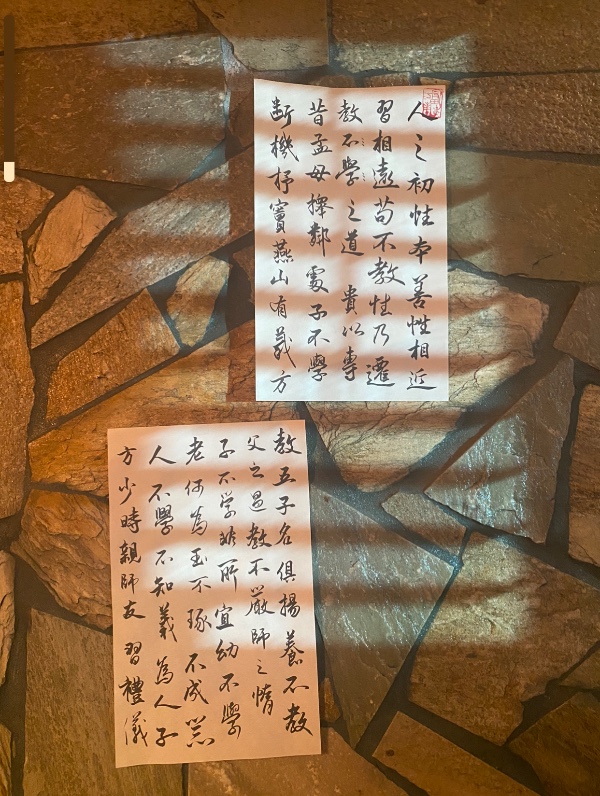 人之初性本善性相近
習相遠苟不教性乃遷
教不學之道貴以專
昔孟母擇鄰處子不學
斷機杼竇燕山有義方
教五子名俱揚養不教
父之過教不嚴師之惰
子不学非所宜幼不學
老何為玉不琢不成器
人不學不知義為人子
方少時親師友習禮儀